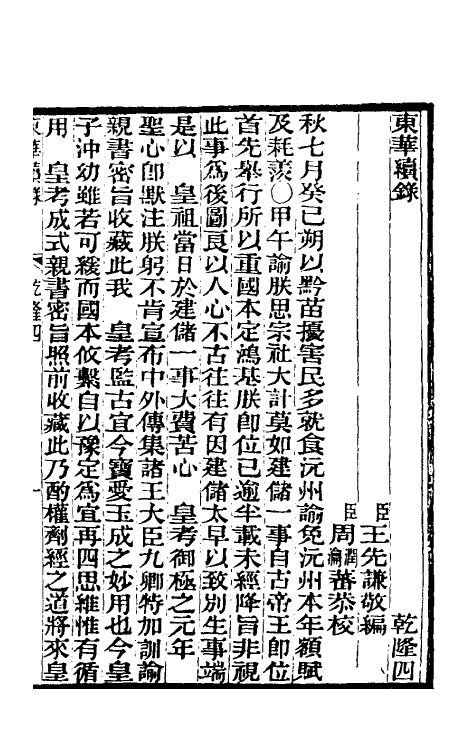 東華續錄　乾隆四
臣王先謙敬編
臣周潤蕃　周瀹蕃恭校
秋七月癸巳朔以黔苗擾害民多就食沅州諭免沅州本年額賦
及耗羨○甲午諭朕思宗社大計莫如建儲一事自古帝王卽位
首先舉行所以重國本定鴻基朕卽位已逾半載未經降旨非視
此事爲後圖良以人心不古往往有因建儲太早以致別生事端
是以　皇祖當日於建儲一事大費苦心　皇考御極之元年
聖心卽默注朕躬不肯宣布中外傳集諸王大臣九卿特加訓諭
親書密旨收藏此我　皇考監古宜今寶愛玉成之妙用也今皇
子沖幼雖若可緩而國本攸繫自以豫定爲宜再四思維惟有循
用　皇考成式親書密旨照前收藏此乃酌權劑經之道將來皇
東華續錄　乾隆四　一